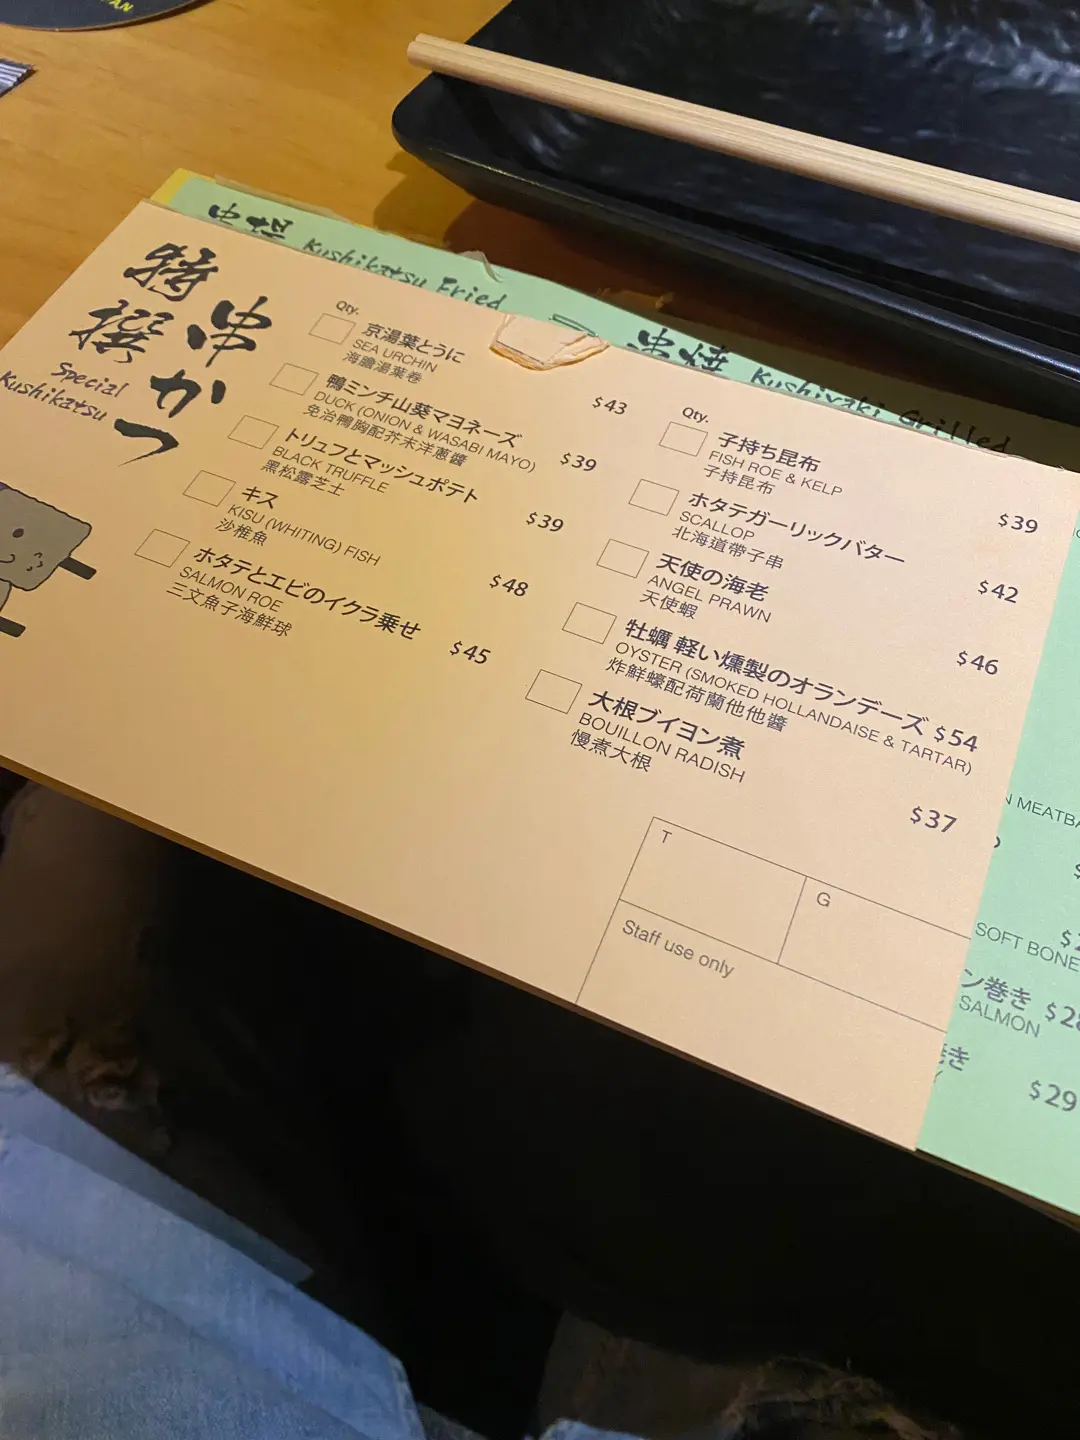 串揚 Kushikatsu Fried
串焼 Kushiyaki Grilled
特撰
串かつ
Special
Kushikatsu
Qty.
京湯葉とうに
SEA URCHIN
海膽湯葉卷
$43
鴨ミンチ山葵マヨネーズ
DUCK (ONION & WASABI MAYO)
免治鴨胸配芥末洋蔥醬
$39
トリュフとマッシュポテト
BLACK TRUFFLE
黑松露芝士
$39
キス
KISU (WHITING) FISH
沙錐魚
$48
ホタテとエビのイクラ乗せ
SALMON ROE
三文魚子海鮮球
$45
Qty.
子持ち昆布
FISH ROE & KELP
子持昆布
$39
ホタテガーリックバター
SCALLOP
北海道帶子串
$42
天使の海老
ANGEL PRAWN
天使蝦
$46
牡蠣 軽い燻製のオランデーズ $54
OYSTER (SMOKED HOLLANDAISE & TARTAR)
炸鮮蠔配荷蘭他他醬
大根ブイヨン煮
BOUILLON RADISH
慢煮大根
$37
T
G
Staff use only
MEATBA
SOFT BONE
ン巻き $28
SALMON
巻き
$29